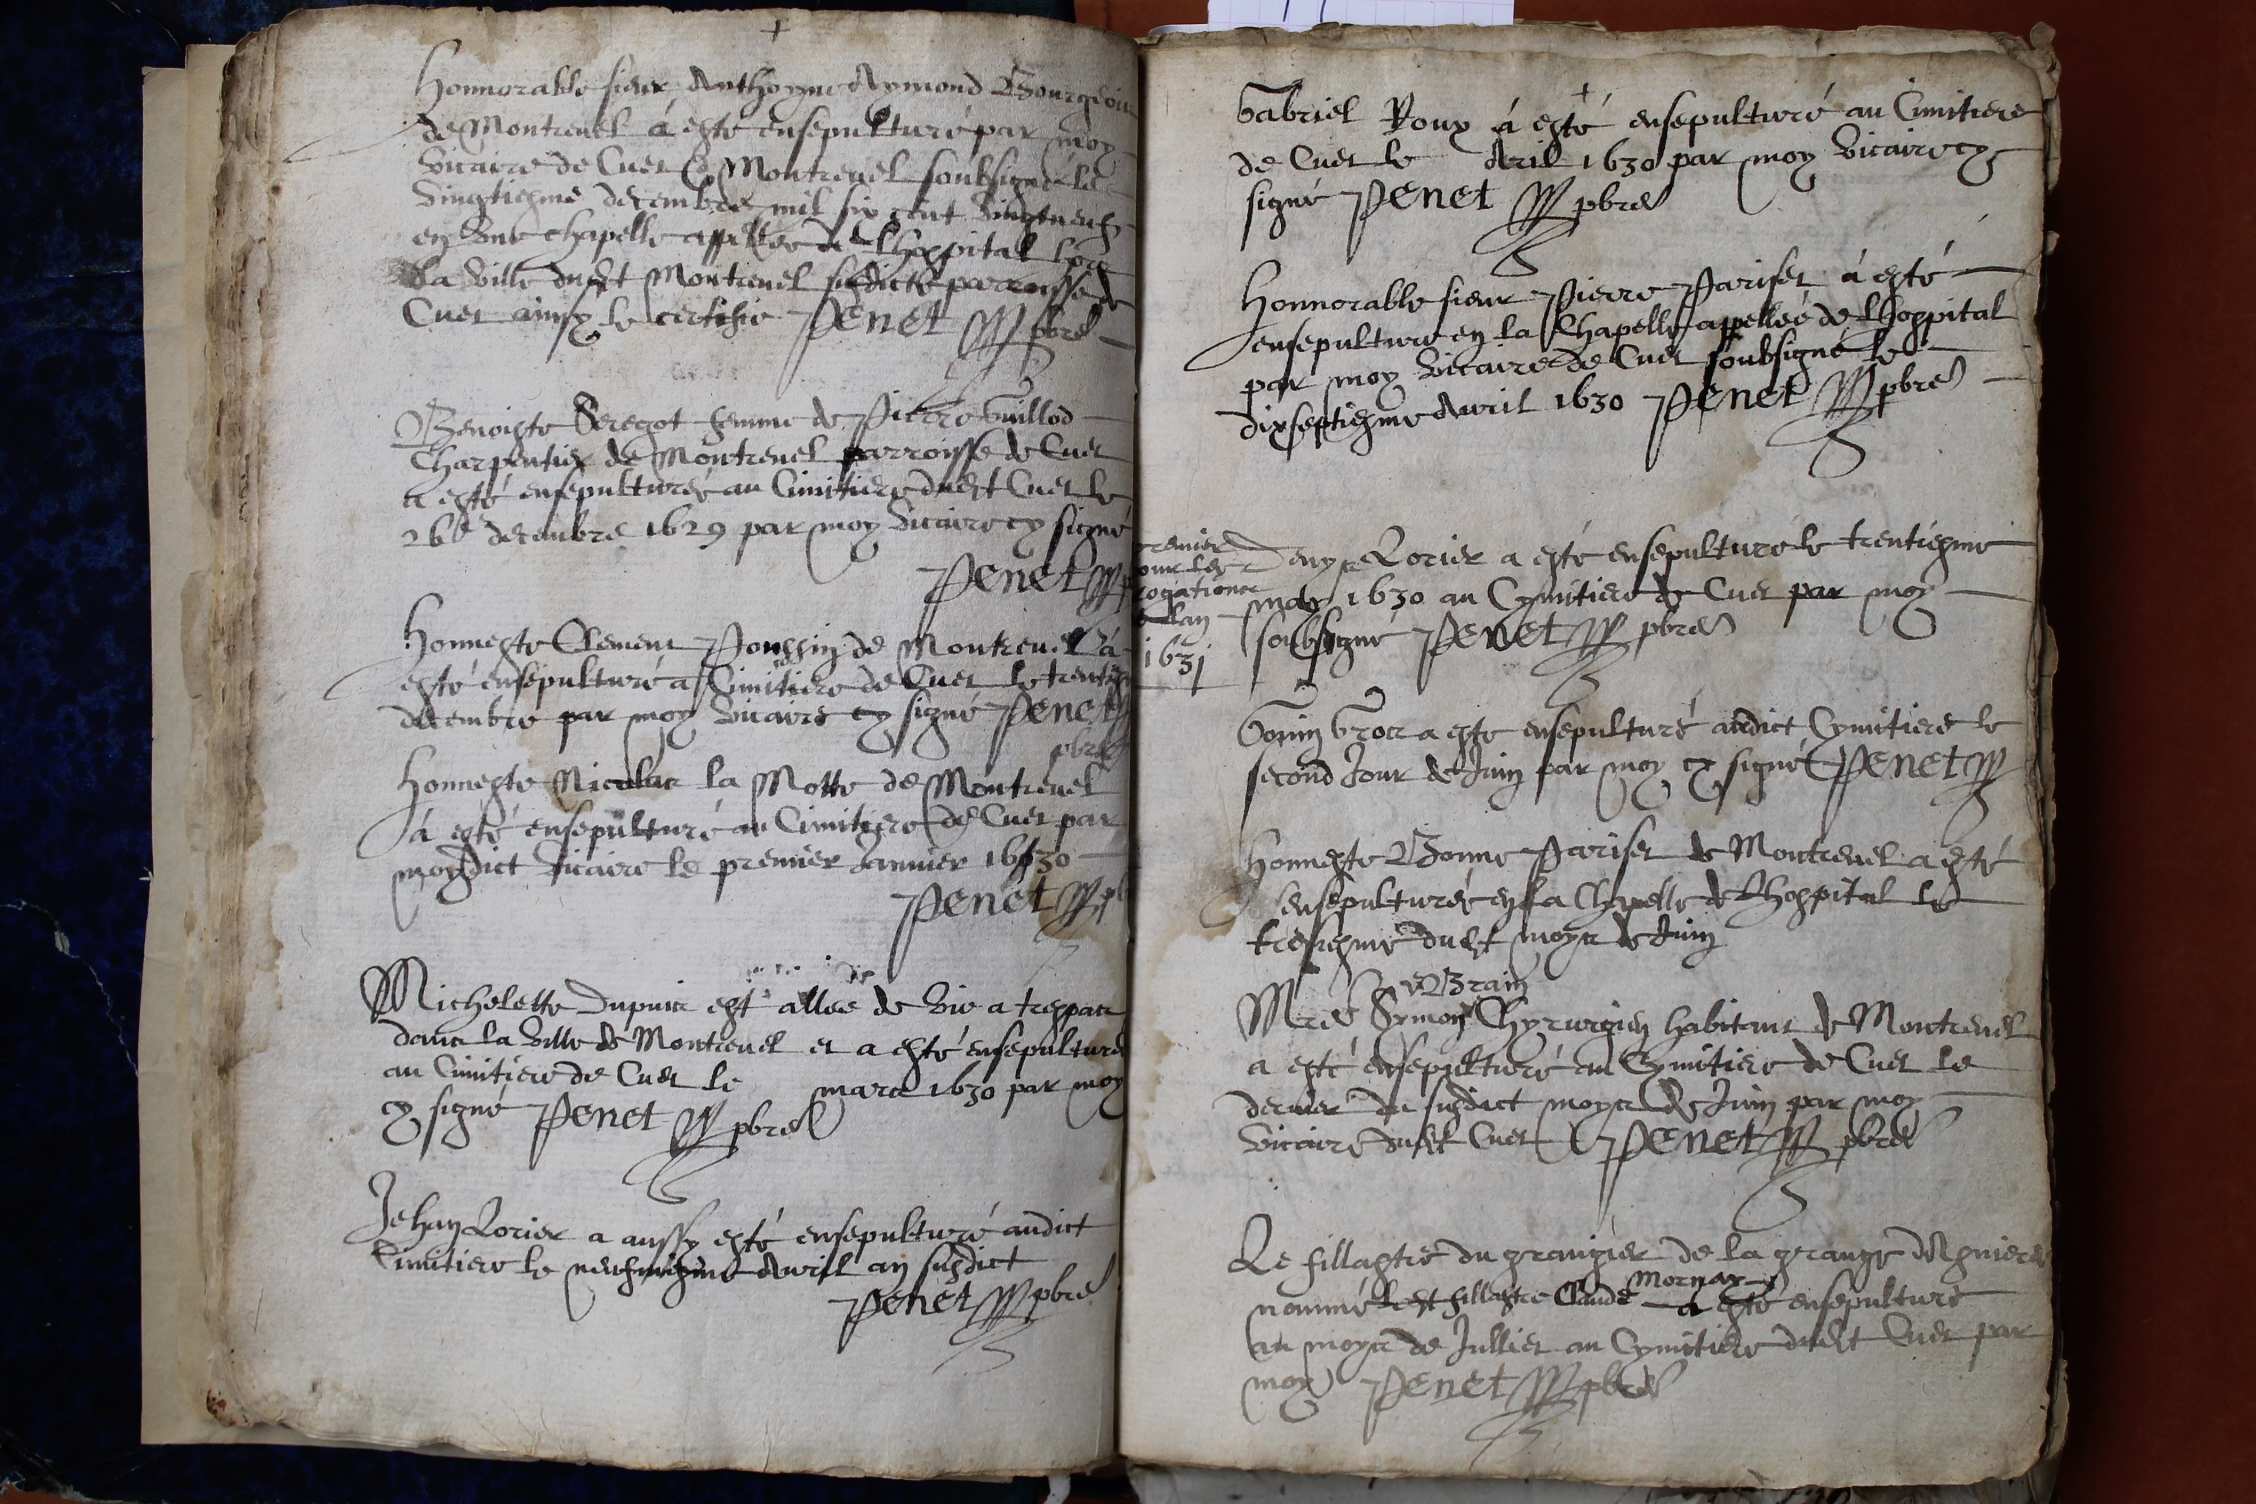 Honnorable sieur Anthoyne Aymond Bourgeois
de Montrevel á esté ensepulturé par moy
vicaire de Cuet & Montrevel soubsigné le
vingtiesme decembre mil six cent vingtneufz
en une chapelle appellée de l'hospital lors
la ville dudt Montrevel susdicte parroisse de
Cuet ainsy le certifie Penet pbre
Benoiste femme de Pierre Guillod
Charpentier de Montrevel parroisse de Cuet
a esté ensepulturée au Cimitiere dudt Cuet le
26e decembre 1629 par moy vicaire cy signé
Penet
Honneste Clement Poussin de Montrevel á
esté ensepulturé a Cimitiere de Cuet le trentie
decembre par moy vicaire cy signé Penet
pbre
Honneste Nicolas la Motte de Montrevel
á esté ensepulturé au Cimitiere de Cuet par
moydict vicaire le premier Janvier 1630
Penet
Michelette Dupuis est allee de vie a trespas
dans la ville de Montrevel et a esté ensepulturé
au Cimitiere de Cuet le mars 1630 par moy
cy signé Penet pbre
Jehan Lorier a aussy esté ensepulturé audict
Cimitiere le neufviesme Avril an susdict
Penet pbre
Gabriel Roux á esté ensepulturé au Cimitiere
de Cuet le Avril 1630 par moy vicaire cy
signé Penet pbre
Honnorable sieur Pierre Pariset á esté
ensepulturé en la Chapelle appellée de Lhospital
par moy vicaire de Cuet soubsigné le
dixseptiesme Avril 1630 Penet pbre
premier
pour les
rogations
de lan
1631
Denys Lorier a esté ensepulturé le trentiesme
may 1630 au Cymitiere de Cuet par moy
soubsigné Penet pbre
Gonin Gros a esté ensepulturé audict Cymitiere le
second Jour de Juin par moy cy signé Penet
Honneste Bonne Pariset de Montrevel a esté
ensepulturée en la Chapelle de Lhospital le
dudt moys de Juin
Brain
Mre Symon Chyrurgien habitant de Montrevel
a esté ensepulturé au Cymitiere de Cuet le
dernier du susdict moys de Juin par moy
vicaire dudt Cuet Penet pbre
Le fillastre du grangier de la grange
Mornay
nommé ledt fillastre Claude a esté ensepulturé
au moys de Jullier au Cymitiere dudt Cuet par
moy Penet pbre